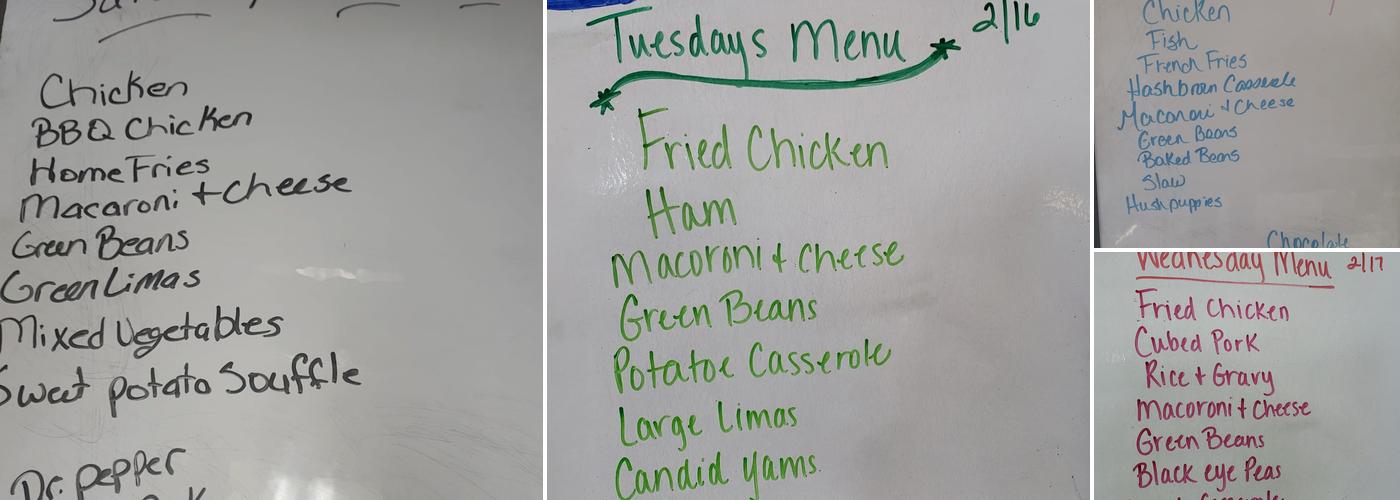 Chicken
BBQ Chicken
Home Fries
Macaroni + Cheese
Green Beans
Green Limas
Mixed Vegetables
Sweet potato Souffle
Dr. pepper
Tuesdays Menu 2/16
Fried Chicken
Ham
Macoroni & Cheese
Green Beans
Potatoe Casserole
Large Limas
Candid yams.
Chicken
Fish
French Fries
Hashbrown Casserole
Macaroni & Cheese
Green Beans
Baked Beans
Slaw
Hushpuppies
Chocolate
Wednesday Menu 2/17
Fried Chicken
Cubed Pork
Rice + Gravy
Macoroni & Cheese
Green Beans
Black eye Peas